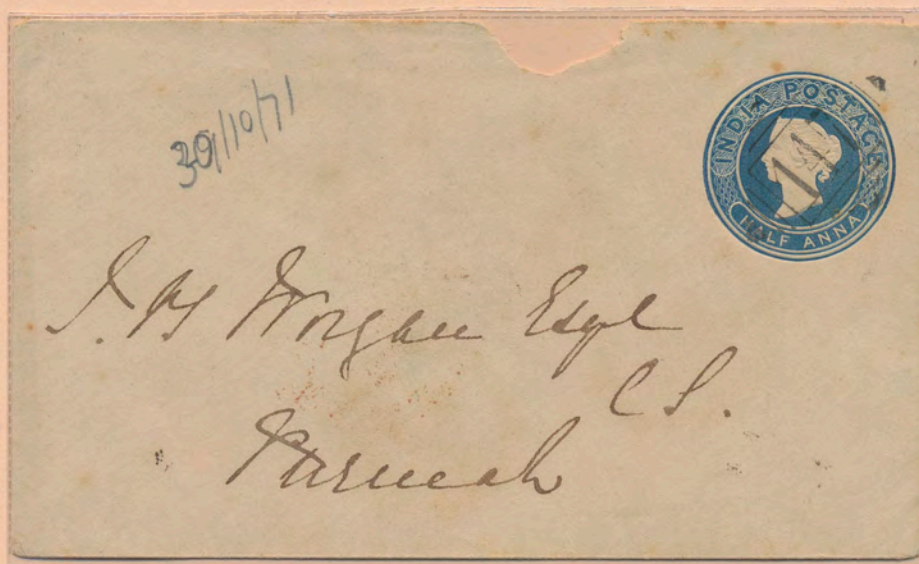 30/10/71
INDIA POSTAGE
11
HALF ANNA
J. H Worgan Esqe
C S.
Purneah